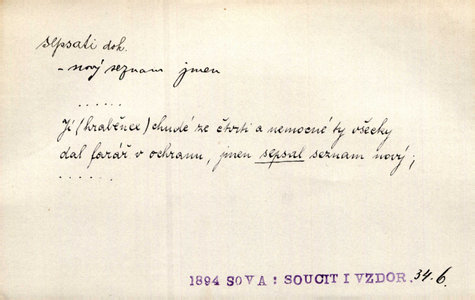 sepsati dok.
- nový seznam jmen
. . . . . .
Jí (hraběnce) chudé ze čtvrti a nemocné ty všecky
dal farář v ochranu, jmen sepsal seznam nový;
. . . . . .
1894 SOVA: SOUCIT I VZDOR. 34.6.